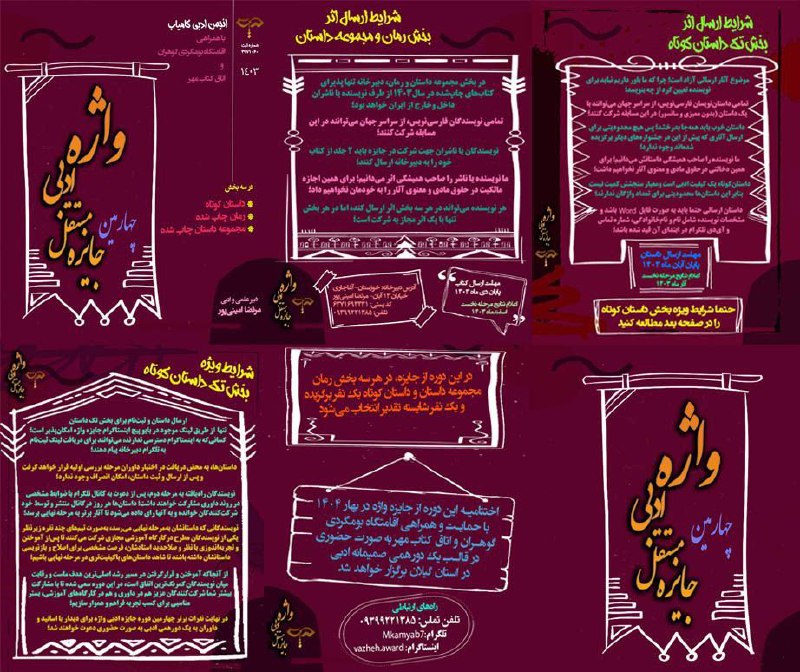 انجمن ادبی کامیاب
با همراهی
اقامتگاه بومگردی گوهران
و
اتاق کتاب مهر
۱۴۰۳
چهارمین
جایزه مستقل
ادبی
واژه
در سه بخش
داستان کوتاه
رمان چاپ شده
مجموعه داستان چاپ شده
دبیر علمی و ادبی
مرتضا امینی‌پور
شرایط ارسال اثر
بخش رمان و مجموعه داستان
در بخش مجموعه داستان و رمان، دبیرخانه تنها پذیرای
کتاب‌های چاپ‌شده در سال ۱۴۰۳ از طرف نویسنده یا ناشران
داخل و خارج از ایران خواهد بود!
تمامی نویسندگان فارسی‌نویس، از سراسر جهان می‌توانند در این
مسابقه شرکت کنند!
نویسندگان یا ناشران جهت شرکت در جایزه باید ۲ جلد از کتاب
خود را به دبیرخانه ارسال کنند!
ما نویسنده یا ناشر را صاحب همیشگی اثر می‌دانیم! برای همین اجازه
مالکیت در حقوق مادی و معنوی آثار را به خودمان نخواهیم داد!
هر نویسنده می‌تواند در هر سه بخش اثر ارسال کند، اما در هر بخش
تنها با یک اثر مجاز به شرکت است!
مهلت ارسال کتاب
پایان دی ماه ۱۴۰۳
اعلام نتایج مرحله نخست
اسفندماه ۱۴۰۳
آدرس دبیرخانه: خوزستان - آغاجاری
خیابان ۱۲ آبان - مرتضا امینی‌پور
تلفن: ۰۹۳۹۹۲۲۱۲۸۵
شرایط ارسال اثر
بخش تک داستان کوتاه
موضوع آثار ارسالی آزاد است! چرا که ما باور داریم نباید برای
نویسنده تعیین کرد از چه بنویسد!
تمامی داستان‌نویسان فارسی‌نویس، از سراسر جهان می‌توانند با
یک داستان (بدون ممیزی و سانسور) در این مسابقه شرکت کنند!
داستان خوب باید همه جا بدرخشد! پس هیچ محدودیتی برای
ارسال آثاری که پیش از این در جشنواره‌های دیگر برگزیده
شده‌اند وجود ندارد!
ما نویسنده را صاحب همیشگی داستانش می‌دانیم! برای
همین دخالتی در حقوق مادی و معنوی آثار نخواهیم داشت!
داستان کوتاه یک کیفیت ادبی است و معیار سنجشش کمیت نیست
بنابر این داستان‌ها محدودیتی برای تعداد واژگان ندارند!
داستان ارسالی حتما باید به صورت فایل Word باشد و
مشخصات نویسنده، شامل نام و نام‌خانوادگی، شماره تماس
و آی‌دی تلگرام در ابتدای آن قید شده باشد!
مهلت ارسال داستان
پایان آبان ماه ۱۴۰۳
اعلام نتایج مرحله نخست
آذر ماه ۱۴۰۳
حتما شرایط ویژه بخش داستان کوتاه
را در صفحه بعد مطالعه کنید
شرایط ویژه
بخش تک داستان کوتاه
ارسال داستان و ثبت‌نام برای بخش تک داستان
تنها از طریق لینک موجود در بایو پیج اینستاگرام جایزه واژه امکان‌پذیر است!
کسانی که به اینستاگرام دسترسی ندارند می‌توانند برای دریافت لینک ثبت‌نام
به تلگرام دبیرخانه پیام دهند!
داستان‌ها، به محض دریافت در اختیار داوران مرحله بررسی اولیه قرار خواهد گرفت
و پس از ارسال و ثبت داستان، امکان انصراف وجود ندارد!
نویسندگان راه‌یافته به مرحله دوم، پس از دعوت به کانال تلگرام با ضوابط مشخصی
در روند داوری مشارکت خواهند داشت! داستان‌ها هر روز در کانال منتشر و توسط خود
شرکت‌کنندگان خوانده و به آنها رای داده می‌شود تا آثار برتر به مرحله نهایی برسند!
نویسندگانی که داستانشان به مرحله نهایی می‌رسد به‌صورت تیم‌های چند نفره زیر نظر
یکی از نویسندگان مطرح در کارگاه آموزشی مجازی شرکت می‌کنند تا پس از آموختن
و تجربه‌اندوزی با نظر و صلاحدید استادشان، فرصت مشخصی برای اصلاح و بازنویسی
داستانشان داشته باشند تا شاهد داستان‌های باکیفیت‌تری در مرحله نهایی باشیم!
از آنجا که آموختن و قرار گرفتن در مسیر رشد اصلی‌ترین هدف ماست و رقابت
میان نویسندگان کمرنگ‌ترین اتفاق است، در این دوره سعی شده تا با مشارکت
بیشتر شما شرکت‌کنندگان عزیز هم در داوری و هم در کارگاه‌های آموزشی، بستر
مناسبی برای کسب تجربه فراهم و هموار سازیم!
در نهایت نفرات برتر چهارمین دوره جایزه ادبی واژه برای دیدار با اساتید و
داوران به یک دورهمی ادبی به صورت حضوری دعوت خواهند شد!
در این دوره از جایزه، در هر سه بخش رمان
مجموعه داستان و داستان کوتاه یک نفر برگزیده
و یک نفر شایسته تقدیر انتخاب می‌شود
اختتامیه این دوره از جایزه واژه در بهار ۱۴۰۴
با حمایت و همراهی اقامتگاه بومگردی
گوهران و اتاق کتاب مهر به صورت حضوری
در قالب یک دورهمی صمیمانه ادبی
در استان گیلان برگزار خواهد شد
راه‌های ارتباطی
تلفن تماس: ۰۹۳۹۹۲۲۱۲۸۵
تلگرام: Mkamyab7
اینستاگرام: vazheh.award
چهارمین
جایزه مستقل
ادبی
واژه